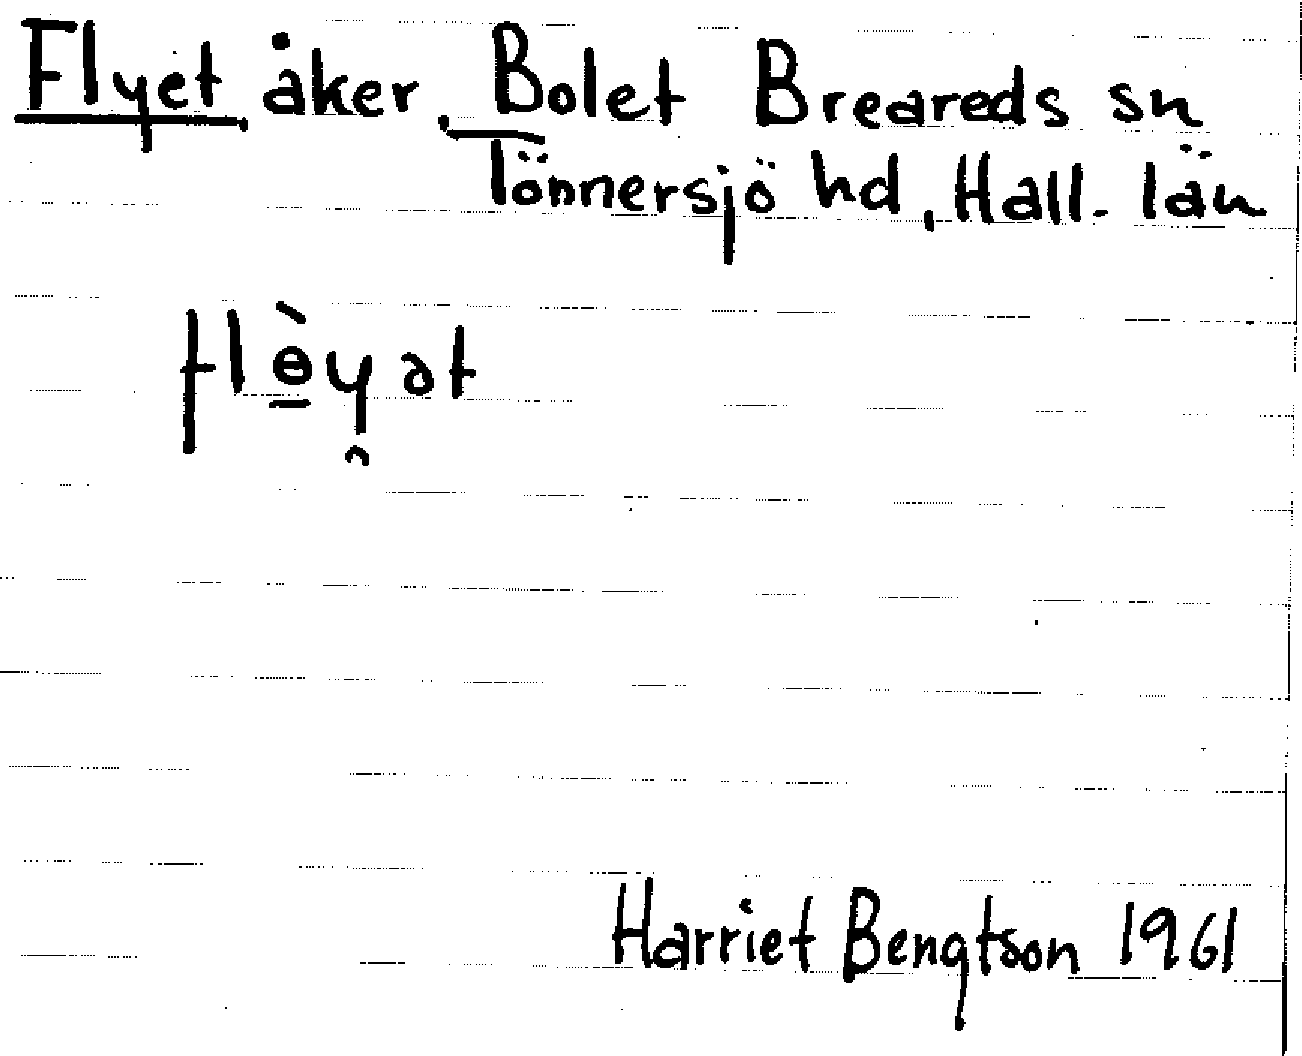 Flyet, åker, Bolet Breareds sn
Tönnersjö hd, Hall. län
flɵ̠̀y̯ət
Harriet Bengtson 1961